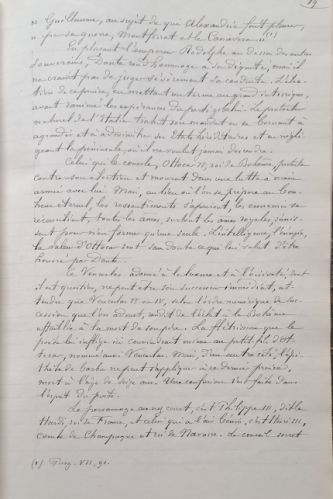 79
" Guillaume, au sujet de qui Alexandrie fait pleurer,
" par sa guerre, Montferrat et le Canavésan. " (1)
En plaçant l'empereur Rodolphe au dessus des autres
souverains, Dante rend hommage à sa dignité, mais il
ne craint pas de juger sévèrement sa conduite. L'élec-
tion de ce prince, en mettant un terme au grand interrègne,
avait ranimé les espérances du parti gibelin. Le protecteur
naturel de l'Italie trahit son mandat en se bornant à
agrandir et à administrer ses états héréditaires et en négli-
geant la péninsule, où il ne voulut jamais descendre.
Celui qui le console, Ottocar II, roi de Bohême, protesta
contre son élection et mourut dans une lutte à main
armée avec lui. Mais, au lieu où l'on se prépare au bon-
heur éternel, les ressentiments s'apaisent, les ennemis se
réconcilient, toutes les âmes, surtout les âmes royales, s'unis-
sent pour n'en former qu'une seule. L'intelligence, l'énergie,
la valeur d'Ottocar sont sans doute ce qui lui valut d'être
honoré par Dante.
Ce Venceslas adonné à la luxure et à l'oisiveté, dont
il est question, ne peut être son successeur immédiat, at-
tendu que Venceslas II ou IV, selon l'ordre numérique de suc-
cession que l'on admet,
à la mort de son père. La flétrissure que le
poète lui inflige ici conviendrait mieux au petit-fils d'Ot-
tocar, nommé aussi Venceslas. Mais, d'un autre côté, l'épi-
thète de barbu ne peut s'appliquer à ce dernier prince,
mort à l'âge de seize ans. Une confusion s'est faite dans
l'esprit du poète.
Le personnage au nez court, c'est Philippe III, dit le
Hardi, roi de France, et celui qui a l'air bénin, c'est Henri III,
comte de Champagne et roi de Navarre. Le conseil secret
(1) Purg. VII, 91.